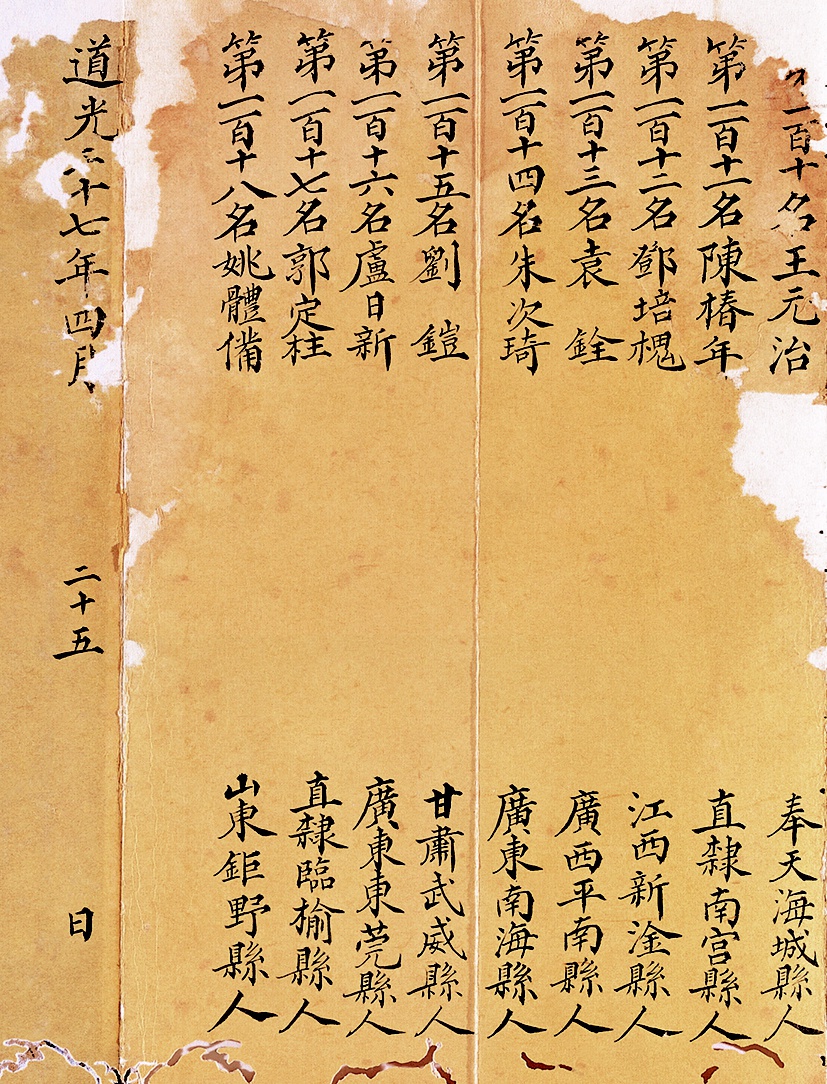 一百十名王元治 奉天海城縣人
第一百十一名陳椿年 直隸南宮縣人
第一百十二名鄧培槐 江西新淦縣人
第一百十三名袁銓 廣西平南縣人
第一百十四名朱次琦 廣東南海縣人
第一百十五名劉鎧 甘肅武威縣人
第一百十六名盧日新 廣東東莞縣人
第一百十七名郭定柱 直隸臨榆縣人
第一百十八名姚體備 山東鉅野縣人
道光二十七年四月 二十五 日